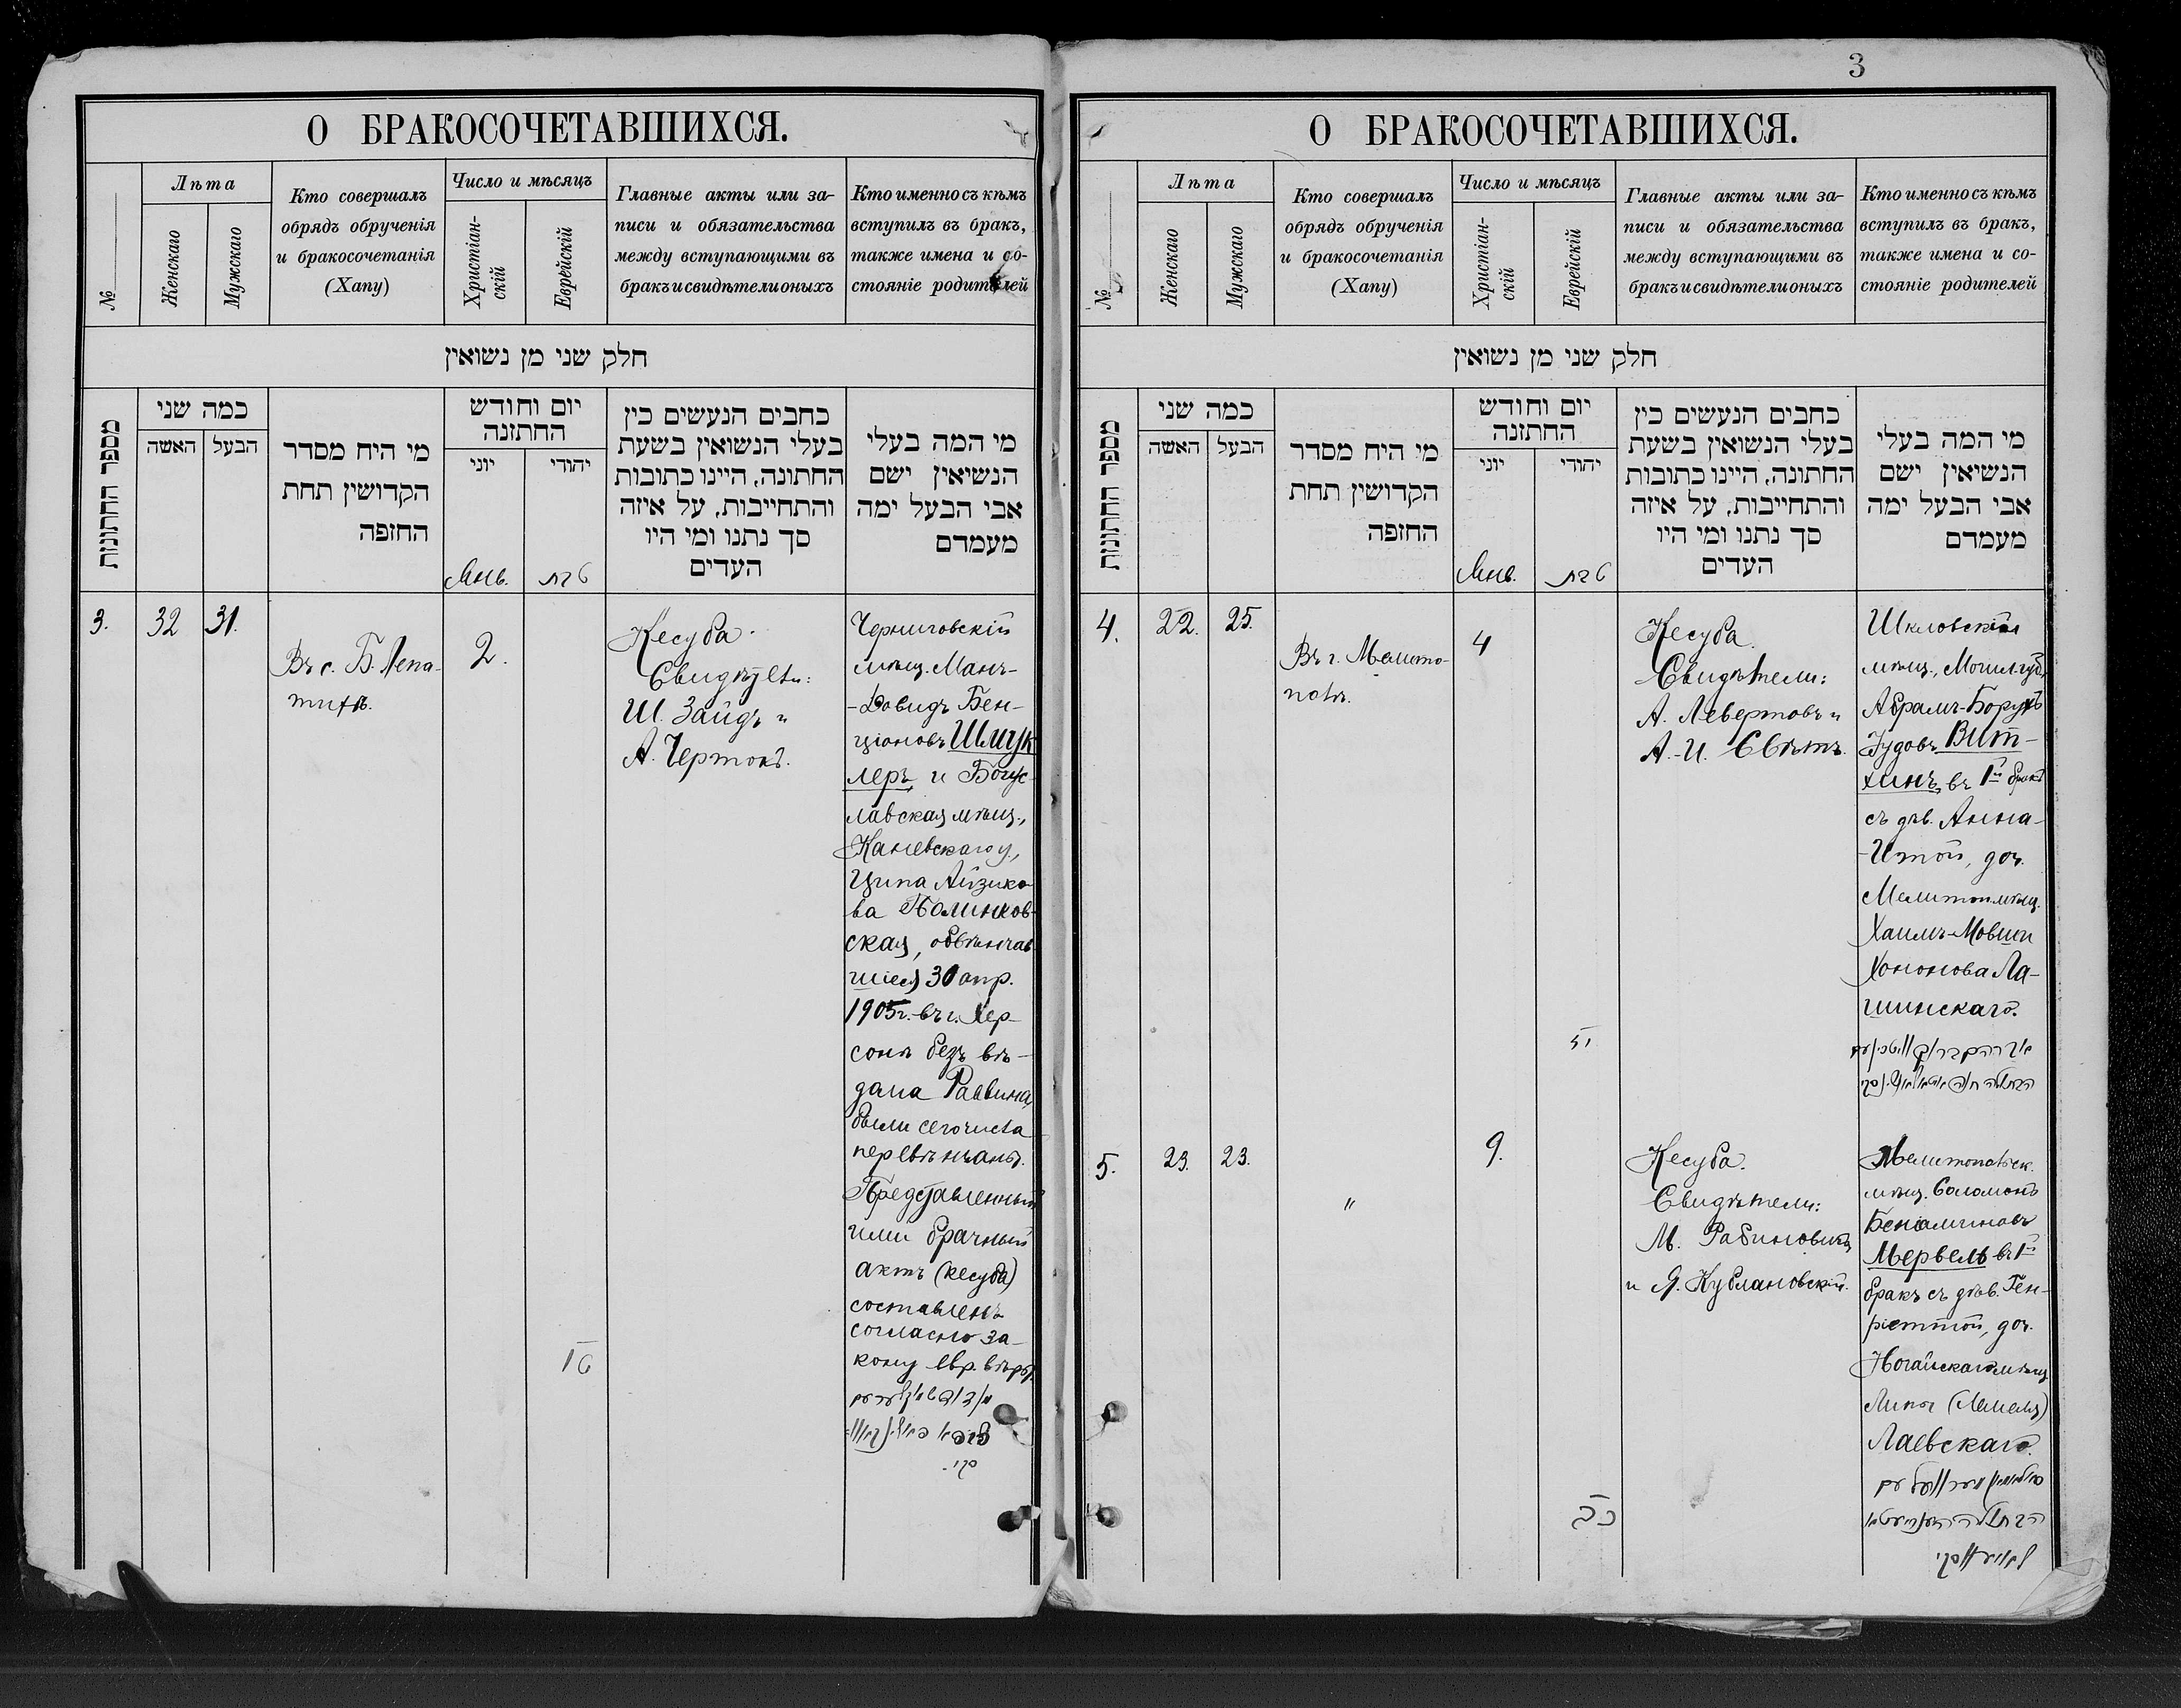 О БРАКОСОЧЕТАВШИХСЯ.
№
Лѣта
Женскаго
Мужскаго
Кто совершалъ
обрядъ обрученія
и бракосочетанія
(Хапу)
Число и мѣсяцъ
Христіан-
скій
Еврейскій
Главные акты или за-
писи и обязательства
между вступающими въ
бракъ и свидѣтели оныхъ
Кто именно съ кѣмъ
вступилъ въ бракъ,
также имена и со-
стояніе родителей
חלק שני מן נשואין
מספר החתונות
כמה שני
האשה
הבעל
מי היח מסדר
הקדושין תחת
החזפה
יום וחודש
החתזנה
יוני
יהודי
Янв.
טבת
כחבים הנעשים כין
בעלי הנשואין בשעת
החתונה, היינו כתובות
והתחייבות, על איזה
סך נתנו ומי היו
העדים
מי המה בעלי
הנשיאין ישם
אבי הבעל ימה
מעמדם
3.
32
31.
Въ с. Б. Лепа-
тихѣ.
2.
טז
Кесуба.
Свидѣтели:
Ш. Зайдъ и
А. Чертокъ.
Черниговскій
мѣщ. Манъ-
-Довидъ Бен-
ціоновъ Шмук
леръ и Богус-
лавская мѣщ.,
Каневскаго у.,
Ципа Айзико-
ва Полинков-
ская, обвѣнчав
шіеся 30 апр.
1905 г. въ г. Хер-
сонѣ безъ вѣ-
дома Раввина,
были сего числа
перевѣнчаны.
Представленный
ими брачный
актъ (кесуба)
составленъ
согласно за-
кону евр. вѣры.
О БРАКОСОЧЕТАВШИХСЯ.
3
№
Лѣта
Женскаго
Мужскаго
Кто совершалъ
обрядъ обрученія
и бракосочетанія
(Хапу)
Число и мѣсяцъ
Христіан-
скій
Еврейскій
Главные акты или за-
писи и обязательства
между вступающими въ
бракъ и свидѣтели оныхъ
Кто именно съ кѣмъ
вступилъ въ бракъ,
также имена и со-
стояніе родителей
חלק שני מן נשואין
מספר החתונות
כמה שני
האשה
הבעל
מי היח מסדר
הקדושין תחת
החזפה
יום וחודש
החתזנה
יוני
יהודי
Янв.
טבת
כחבים הנעשים כין
בעלי הנשואין בשעת
החתונה, היינו כתובות
והתחייבות, על איזה
סך נתנו ומי היו
העדים
מי המה בעלי
הנשיאין ישם
אבי הבעל ימה
מעמדם
4.
22.
25.
Въ г. Мелито-
полѣ.
4
Кесуба.
Свидѣтели:
А. Левертовъ и
А.-И. Свѣтъ.
Шкловскій
мѣщ., Могил. губ.,
Абрамъ-Борухъ
Іудовъ Вит-
кинъ, въ 1й бракъ
съ дѣв. Анна-
-Итой, доч.
Мелитоп. мѣщ.
Хаимъ-Мовши
Хононова Ла-
шинскаго.
5.
23.
23.
"
9.
כג
Кесуба.
Свидѣтели:
М. Рабиновичъ
и Я. Кублановскій.
Мелитопольск.
мѣщ. Соломонъ
Беніаминовъ
Мервель въ 1й
бракъ съ дѣв. Ген-
ріеттой, доч.
Ногайскаго мѣщ.
Липы (Лемеля)
Лаевскаго.